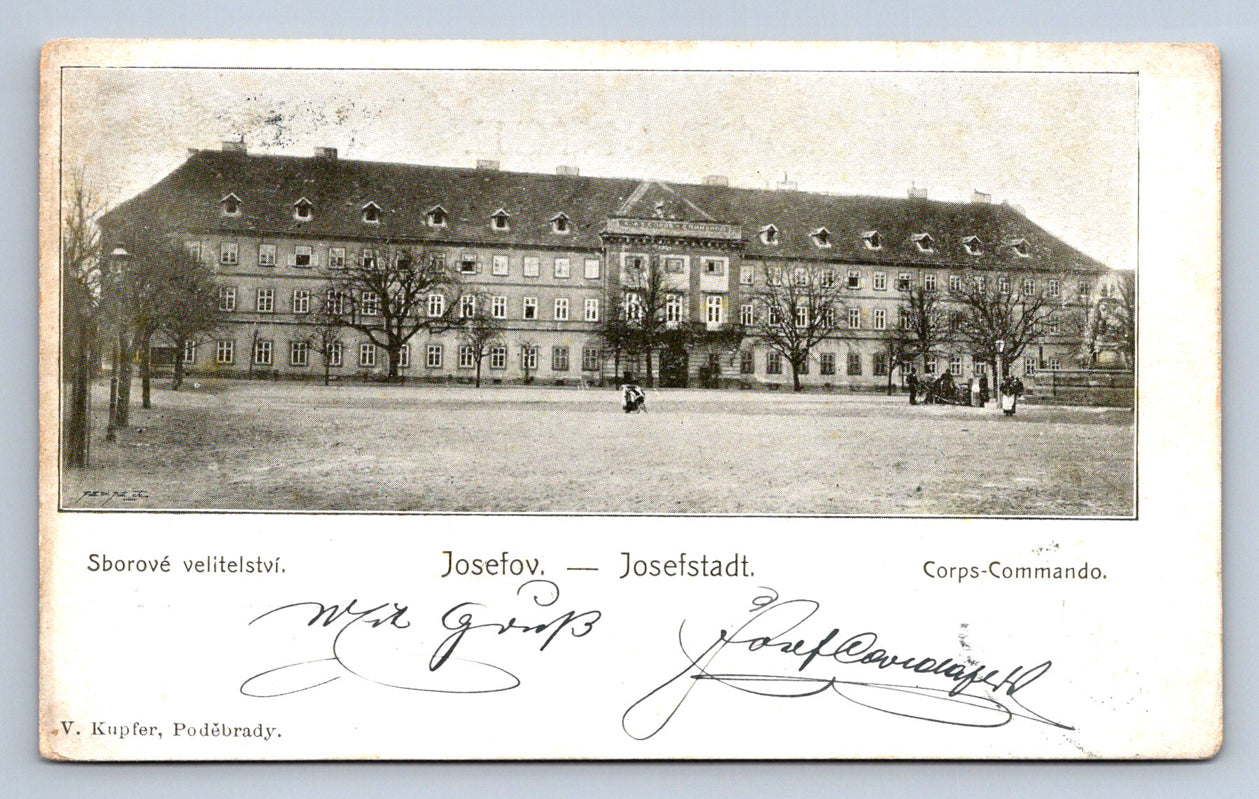 Sborové velitelství. Josefov. — Josefstadt. Corps-Commando.
Mit Gruß
Josef
V. Kupfer, Poděbrady.